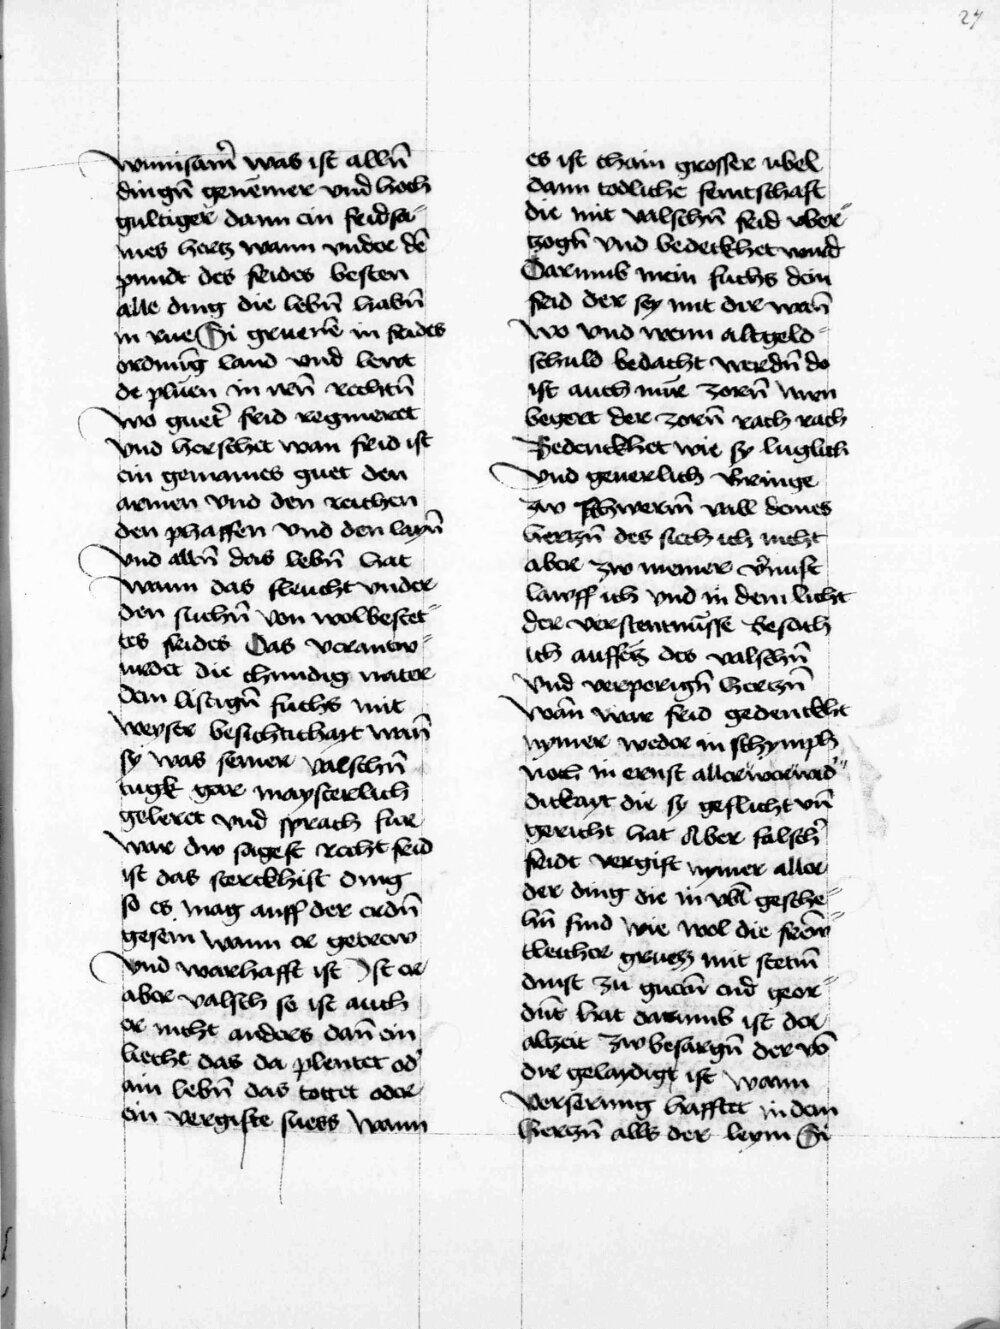 27
wunisam̃ was ist allñ
dingñ genemer vnd hoch
gultiger dann ein fridsa¬
mes hertz wann vnder dẽ
pundt des frides besten
alle ding die lebñ habñ
in rue Si gruenẽ in frides
ordnũg land vnd lewt
de plüen in irñ rechtñ
wo guet̃ frid regnieret
vnd herschet wan frid ist
ein gemaines guet den
armen vnd den reichen
den phaffen vnd den layñ
vnd allñ das lebñ hat
wann das fleucht vnder
den von wolbestet¬
tes frides Das verantw¬
urdet die chundig nater
dem listigñ fuchs mit
weyser besichtichait wañ
sy was seiner valschñ
tugk gar maysterlich
geleret vnd sprach fur
war dw sagest recht frid
ist das sterckhist ding
so es mag auff der erdñ
gesein wann er getrew
vnd warhafft ist Ist er
aber valsch so ist auch
er nicht anders dañ ein
liecht das da plentet od̾
ain lebñ das tottet oder
ein vergifte suess wann
es ist chain grosser ubel
dann todliche feintschaft
die mit valschñ frid vber¬
zogñ vnd bedeckhet wurd
Darumb mein fuchs dein
frid der sey mit dir wañ
wo vnd wenn altgeld¬
schuld bedacht werdñ do
ist auch nür zorñ wen
begert der zorñ rach rach
Bedenckhet wie sy luglich
vnd geuerlich bringe
zw schwerm̃ vall deines
hertzñ des siech ich nicht
aber zw meiner v̾nuft
lawff ich vnd in dem licht
der verstentnüsse besich
ich auffsetz des valschñ
vnd verporigñ hertzñ
wañ war frid gedenckht
nymer weder in schymph
noch in ernst aller worwid¬
dikayt die sy geslicht vñ
gericht hat Aber falsch̾
fridt vergist nymer aller
der ding die in vbl gesche¬
hñ sind wie wol die frew¬
tleicher gruess mit stetm̃
dinst zu guetñ end geor¬
dñt hat darumb ist der
altzeit zw besargñ der võ
dir gelaydigt ist wann
versерung hafftet in dem
hertzñ alls der leym Si